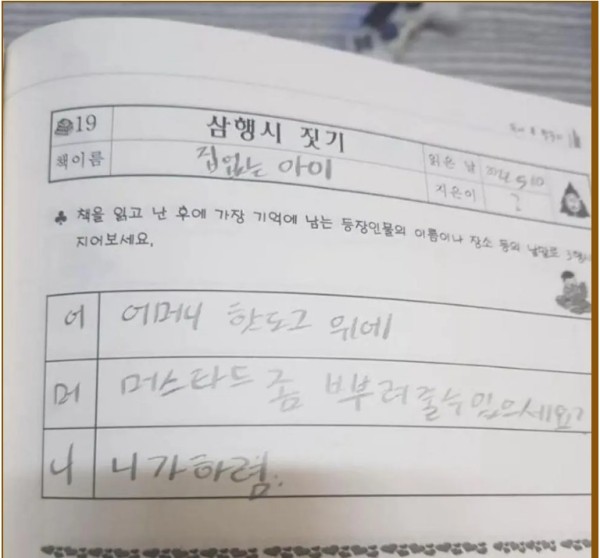 19 삼행시 짓기
책이름 집없는 아이 읽은 날 5 10
지은이 ?
♣ 책을 읽고 난 후에 가장 기억에 남는 등장인물의 이름이나 장소 등의 낱말로 3행시
지어보세요.
어 어머니 핫도그 위에
머 머스타드 좀 뿌려줄수 있으세요?
니 니가하렴.